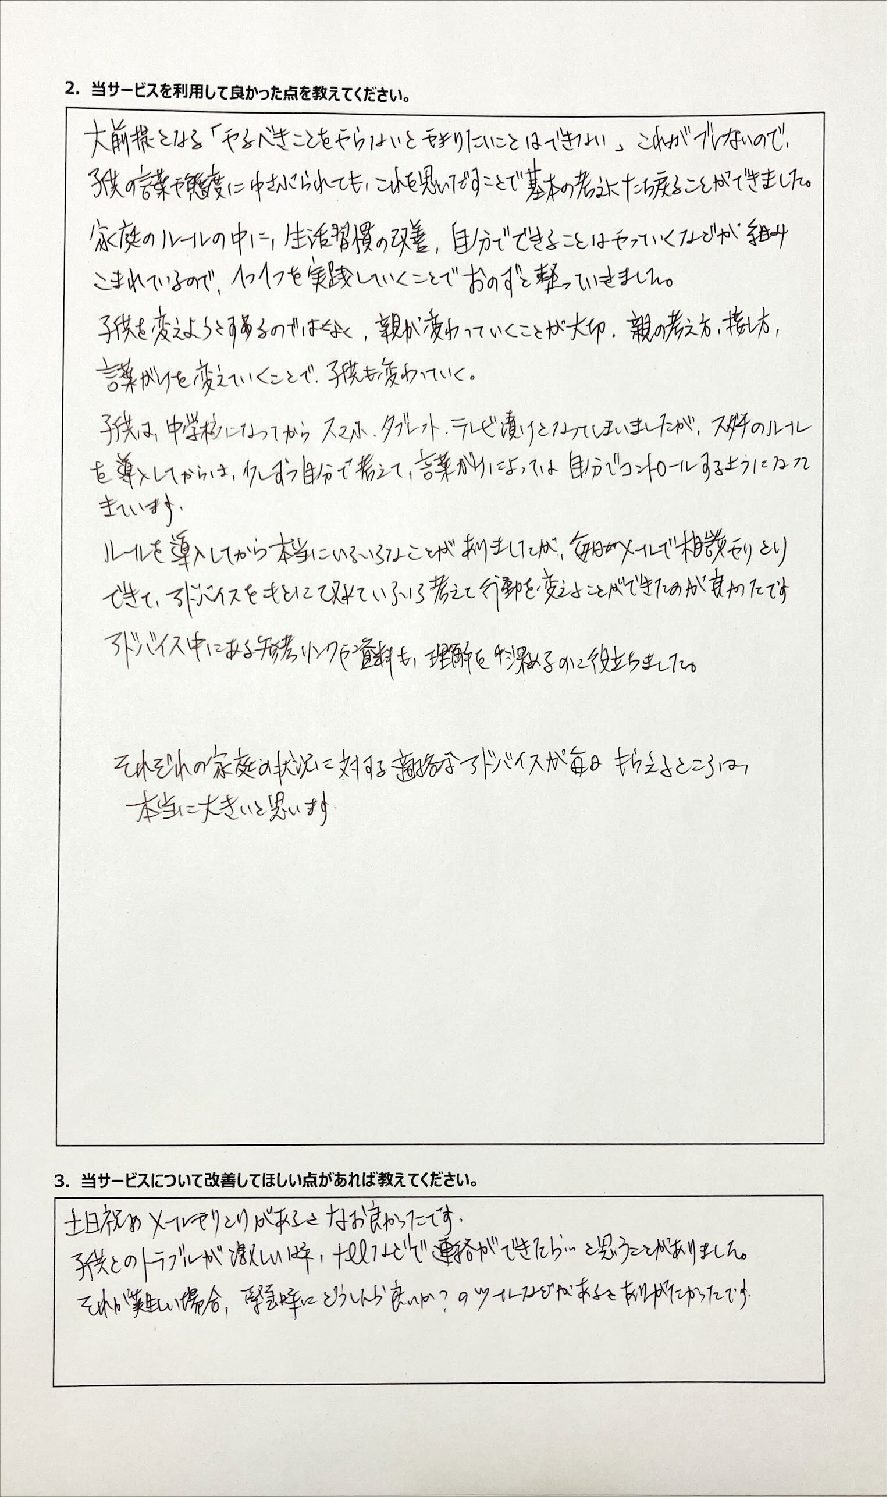 2. 当サービスを利用して良かった点を教えてください。
大前提となる「やるべきことをやらないとやりたいことはできない」これがブレないので、
子供の言葉や態度に中さぶられても、これを思いだすことで基本の考えにたち戻ることができました。
家庭のルールの中に、生活習慣の改善、自分でできることはやっていくなどが組み
こまれているので、1つ1つを実践していくことでおのずと整っていきました。
子供を変えようとするのではなく、親が変わっていくことが大切。親の考え方、接し方、
言葉がけを変えていくことで、子供も変わっていく。
子供は、中学校になってからスマホ、タブレット、テレビ漬けとなってしまいましたが、スダチのルール
を導入してからは、少しずつ自分で考えて、言葉がけによっては自分でコントロールするようになって
きています。
ルールを導入してから本当にいろいろなことがありましたが、毎日のメールで相談やりとり
できて、アドバイスをもとにていろいろ考えて行動を変えることができたのが良かったです
アドバイス中にある参考リンクや資料も、理解を深めるのに役立ちました。
それぞれの家庭の状況に対する適格なアドバイスが毎日もらえるところは、
本当に大きいと思います
3. 当サービスについて改善してほしい点があれば教えてください。
土日祝めメールやりとりがあるとなお良かったです。
子供とのトラブルが激しい時、telなどで連絡ができたら…と思うことがありました。
それが難しい場合、緊急時にどうしたら良いか？のツールなどがあるとありがたかったです